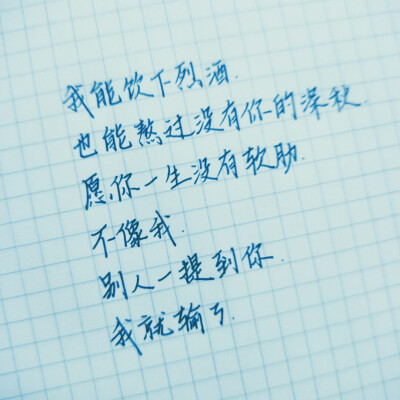 我能饮下烈酒.
也能熬过没有你的深秋.
愿你一生没有软肋.
不像我.
别人一提到你.
我就输了.